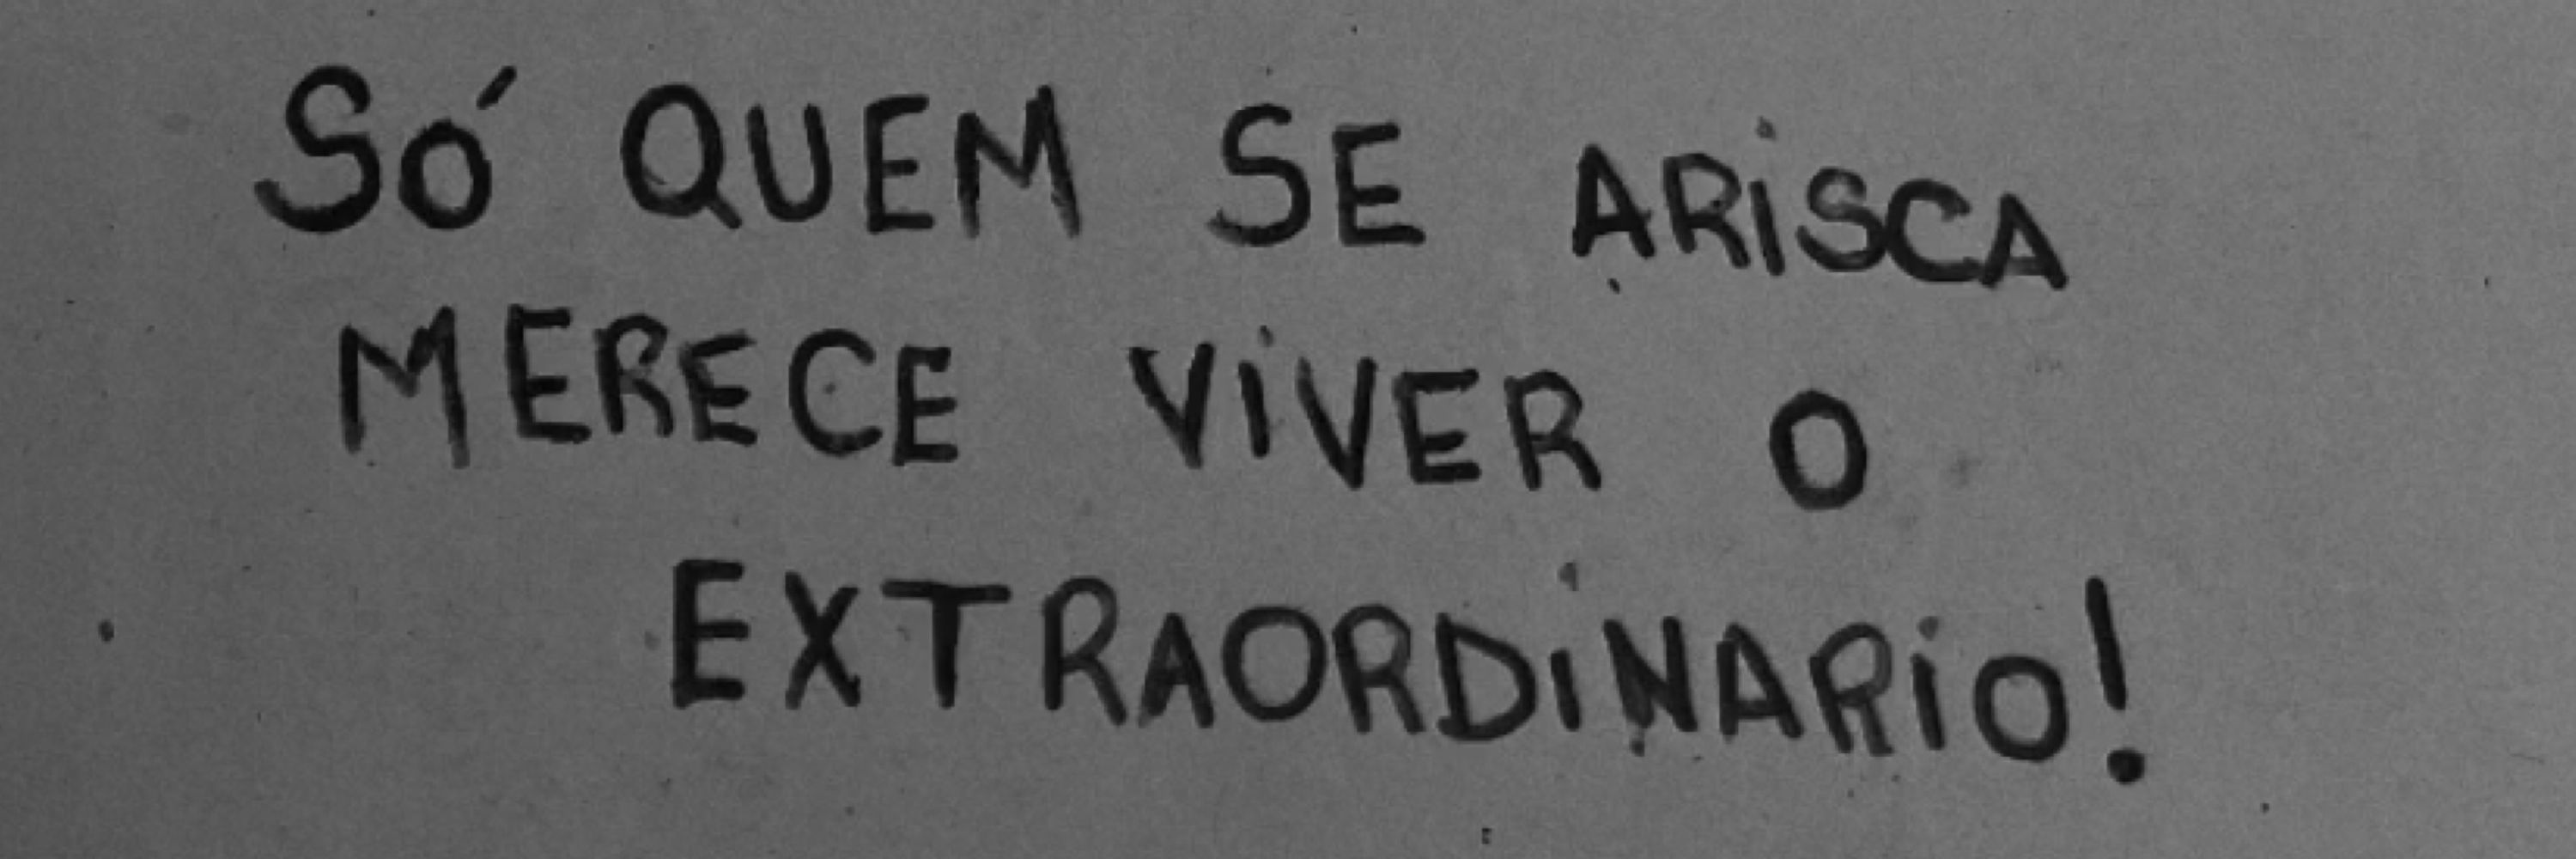 SÓ QUEM SE ARiSCA
MERECE ViVER O
EXTRAORDiNARiO!